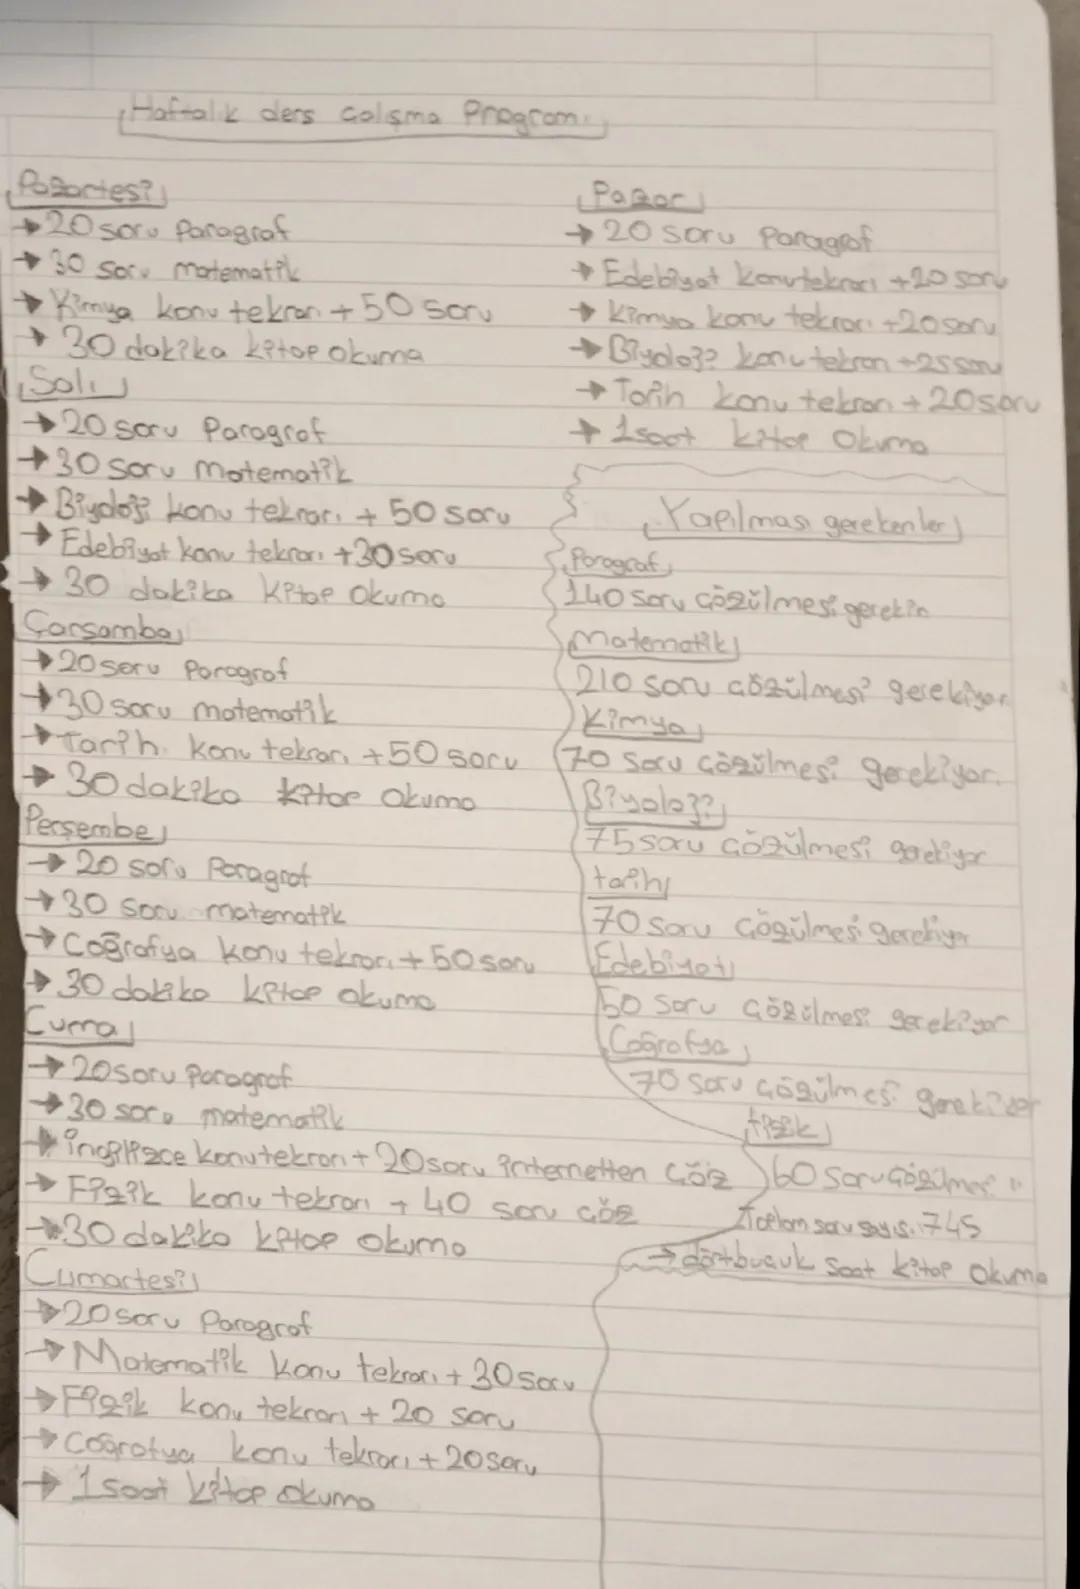 Haftalık ders çalışma Programı
Pazartesi
→ 20 soru Paragraf
→ 30 soru matematik
→ Kimya konu tekrarı + 50 soru
→ 30 dakika kitap okuma
Salı
→ 20 soru Paragraf
→ 30 soru matematik
→ Biyoloji konu tekrarı + 50 soru
→ Edebiyat konu tekrarı + 30 soru
→ 30 dakika kitap okuma
Çarşamba
→ 20 soru Paragraf
→ 30 soru matematik
→ Tarih konu tekrarı + 50 soru
→ 30 dakika kitap okuma
Perşembe
→ 20 soru Paragraf
→ 30 soru matematik
→ Coğrafya konu tekrarı + 50 soru
→ 30 dakika kitap okuma
Cuma
→ 20 soru Paragraf
→ 30 soru matematik
→ ingilizce konu tekrarı + 20 soru internetten çöz
→ Fizik konu tekrarı + 40 soru çöz
→ 30 dakika kitap okuma
Cumartesi
→ 20 soru Paragraf
→ Matematik konu tekrarı + 30 soru
→ Fizik konu tekrarı + 20 soru
→ Coğrafya konu tekrarı + 20 soru
→ 1 saat kitap okuma
Pazar
→ 20 soru Paragraf
→ Edebiyat konu tekrarı + 20 soru
→ Kimya konu tekrarı + 20 soru
→ Biyoloji konu tekrarı + 25 soru
→ Tarih konu tekrarı + 20 soru
→ 1 saat kitap okuma
Yapılması gerekenler
Paragraf
140 soru çözülmesi gerekin
Matematik
210 soru çözülmesi gerekiyor
Kimya
70 soru çözülmesi gerekiyor.
Biyoloji
75 soru çözülmesi gerekiyor
tarih
70 soru çözülmesi gerekiyor
Edebiyat
50 soru çözülmesi gerekiyor
Coğrafya
70 soru çözülmesi gerekiyor
fizik
60 soru çözülmesi "
Toplam soru sayısı. 745
→ dörtbuçuk saat kitap okuma